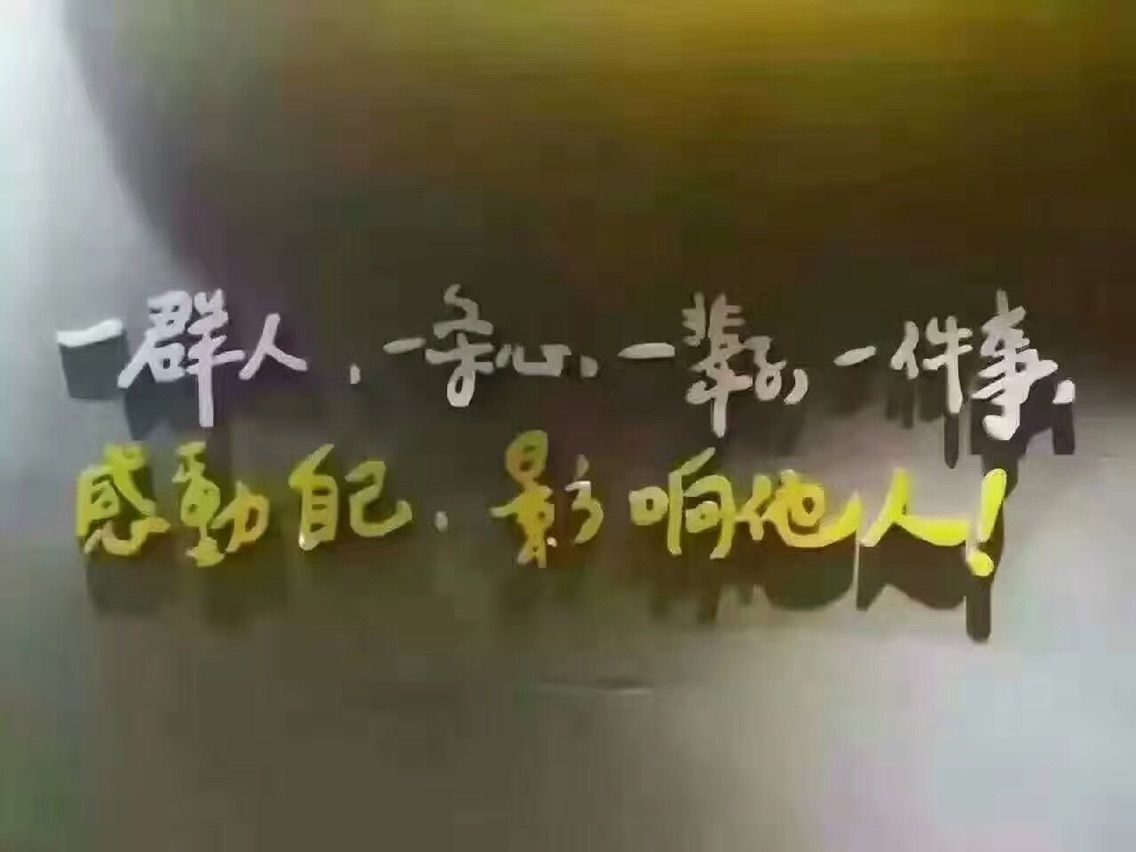 一群人，一条心，一辈子，一件事，
感動自己，影响他人！